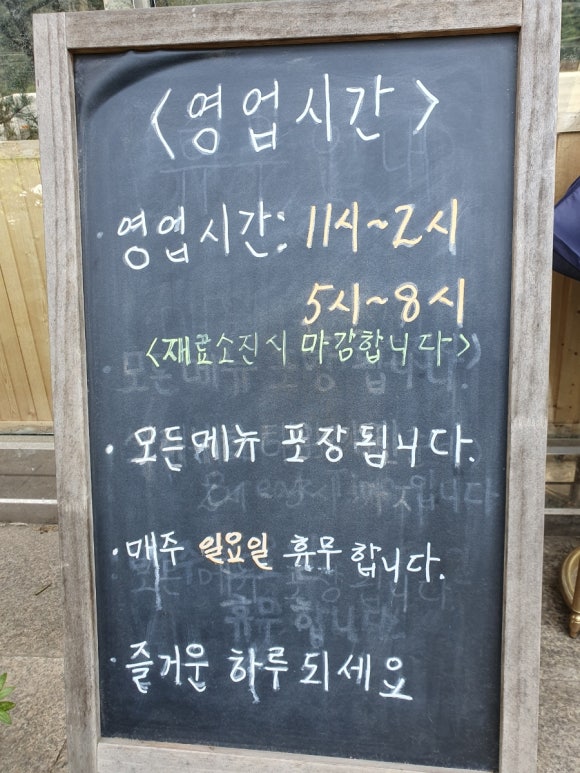 <영업시간>
· 영업시간: 11시~2시
5시~8시
<재료소진시 마감합니다>
· 모든메뉴 포장됩니다.
· 매주 일요일 휴무합니다.
· 즐거운 하루되세요